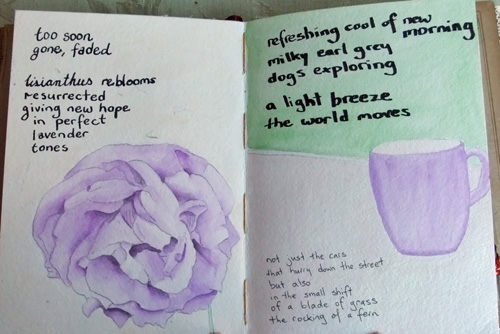 too soon
gone, faded
lisianthus reblooms
resurrected
giving new hope
in perfect
lavender
tones
refreshing cool of new
morning
milky earl grey
dogs exploring
a light breeze
the world moves
not just the cars
that hurry down the street
but also
in the small shift
of a blade of grass
the rocking of a fern